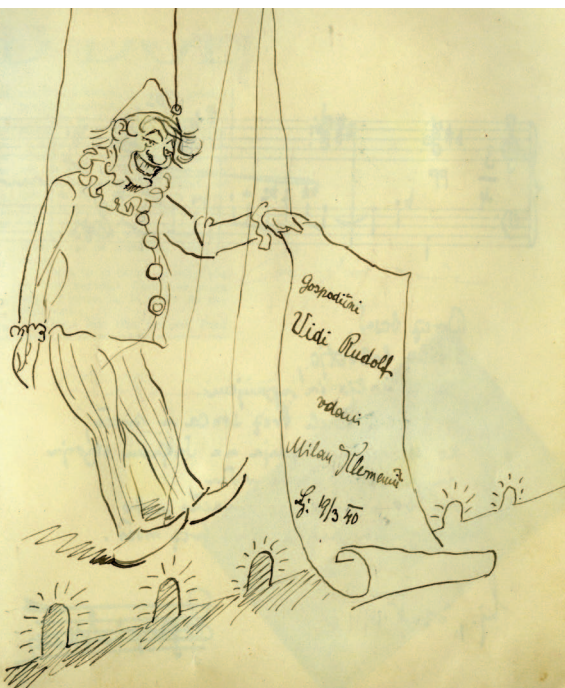 Gospodični
Vidi Rudolf
vdani
Milan Klemenčič
Lj: 19/3 40